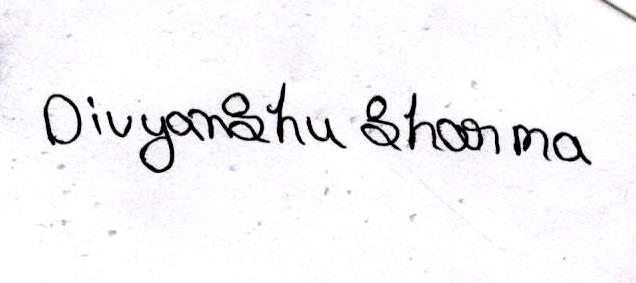 Divyanshu Sharma